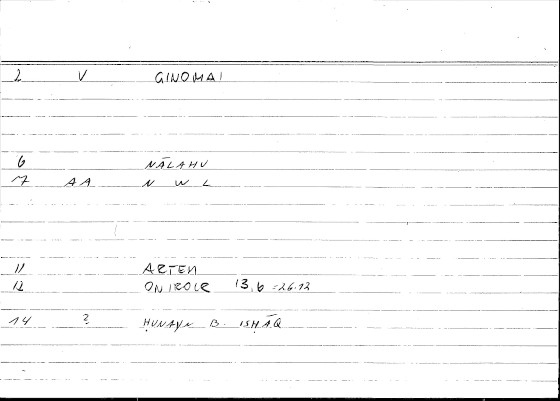 2 V GINOMAI
6 NĀLAHU
7 AA N W L
11 ARTEM
12 ONIROCR 13,6 = 26.12
14 ? ḤUNAYN B. ISḤĀQ